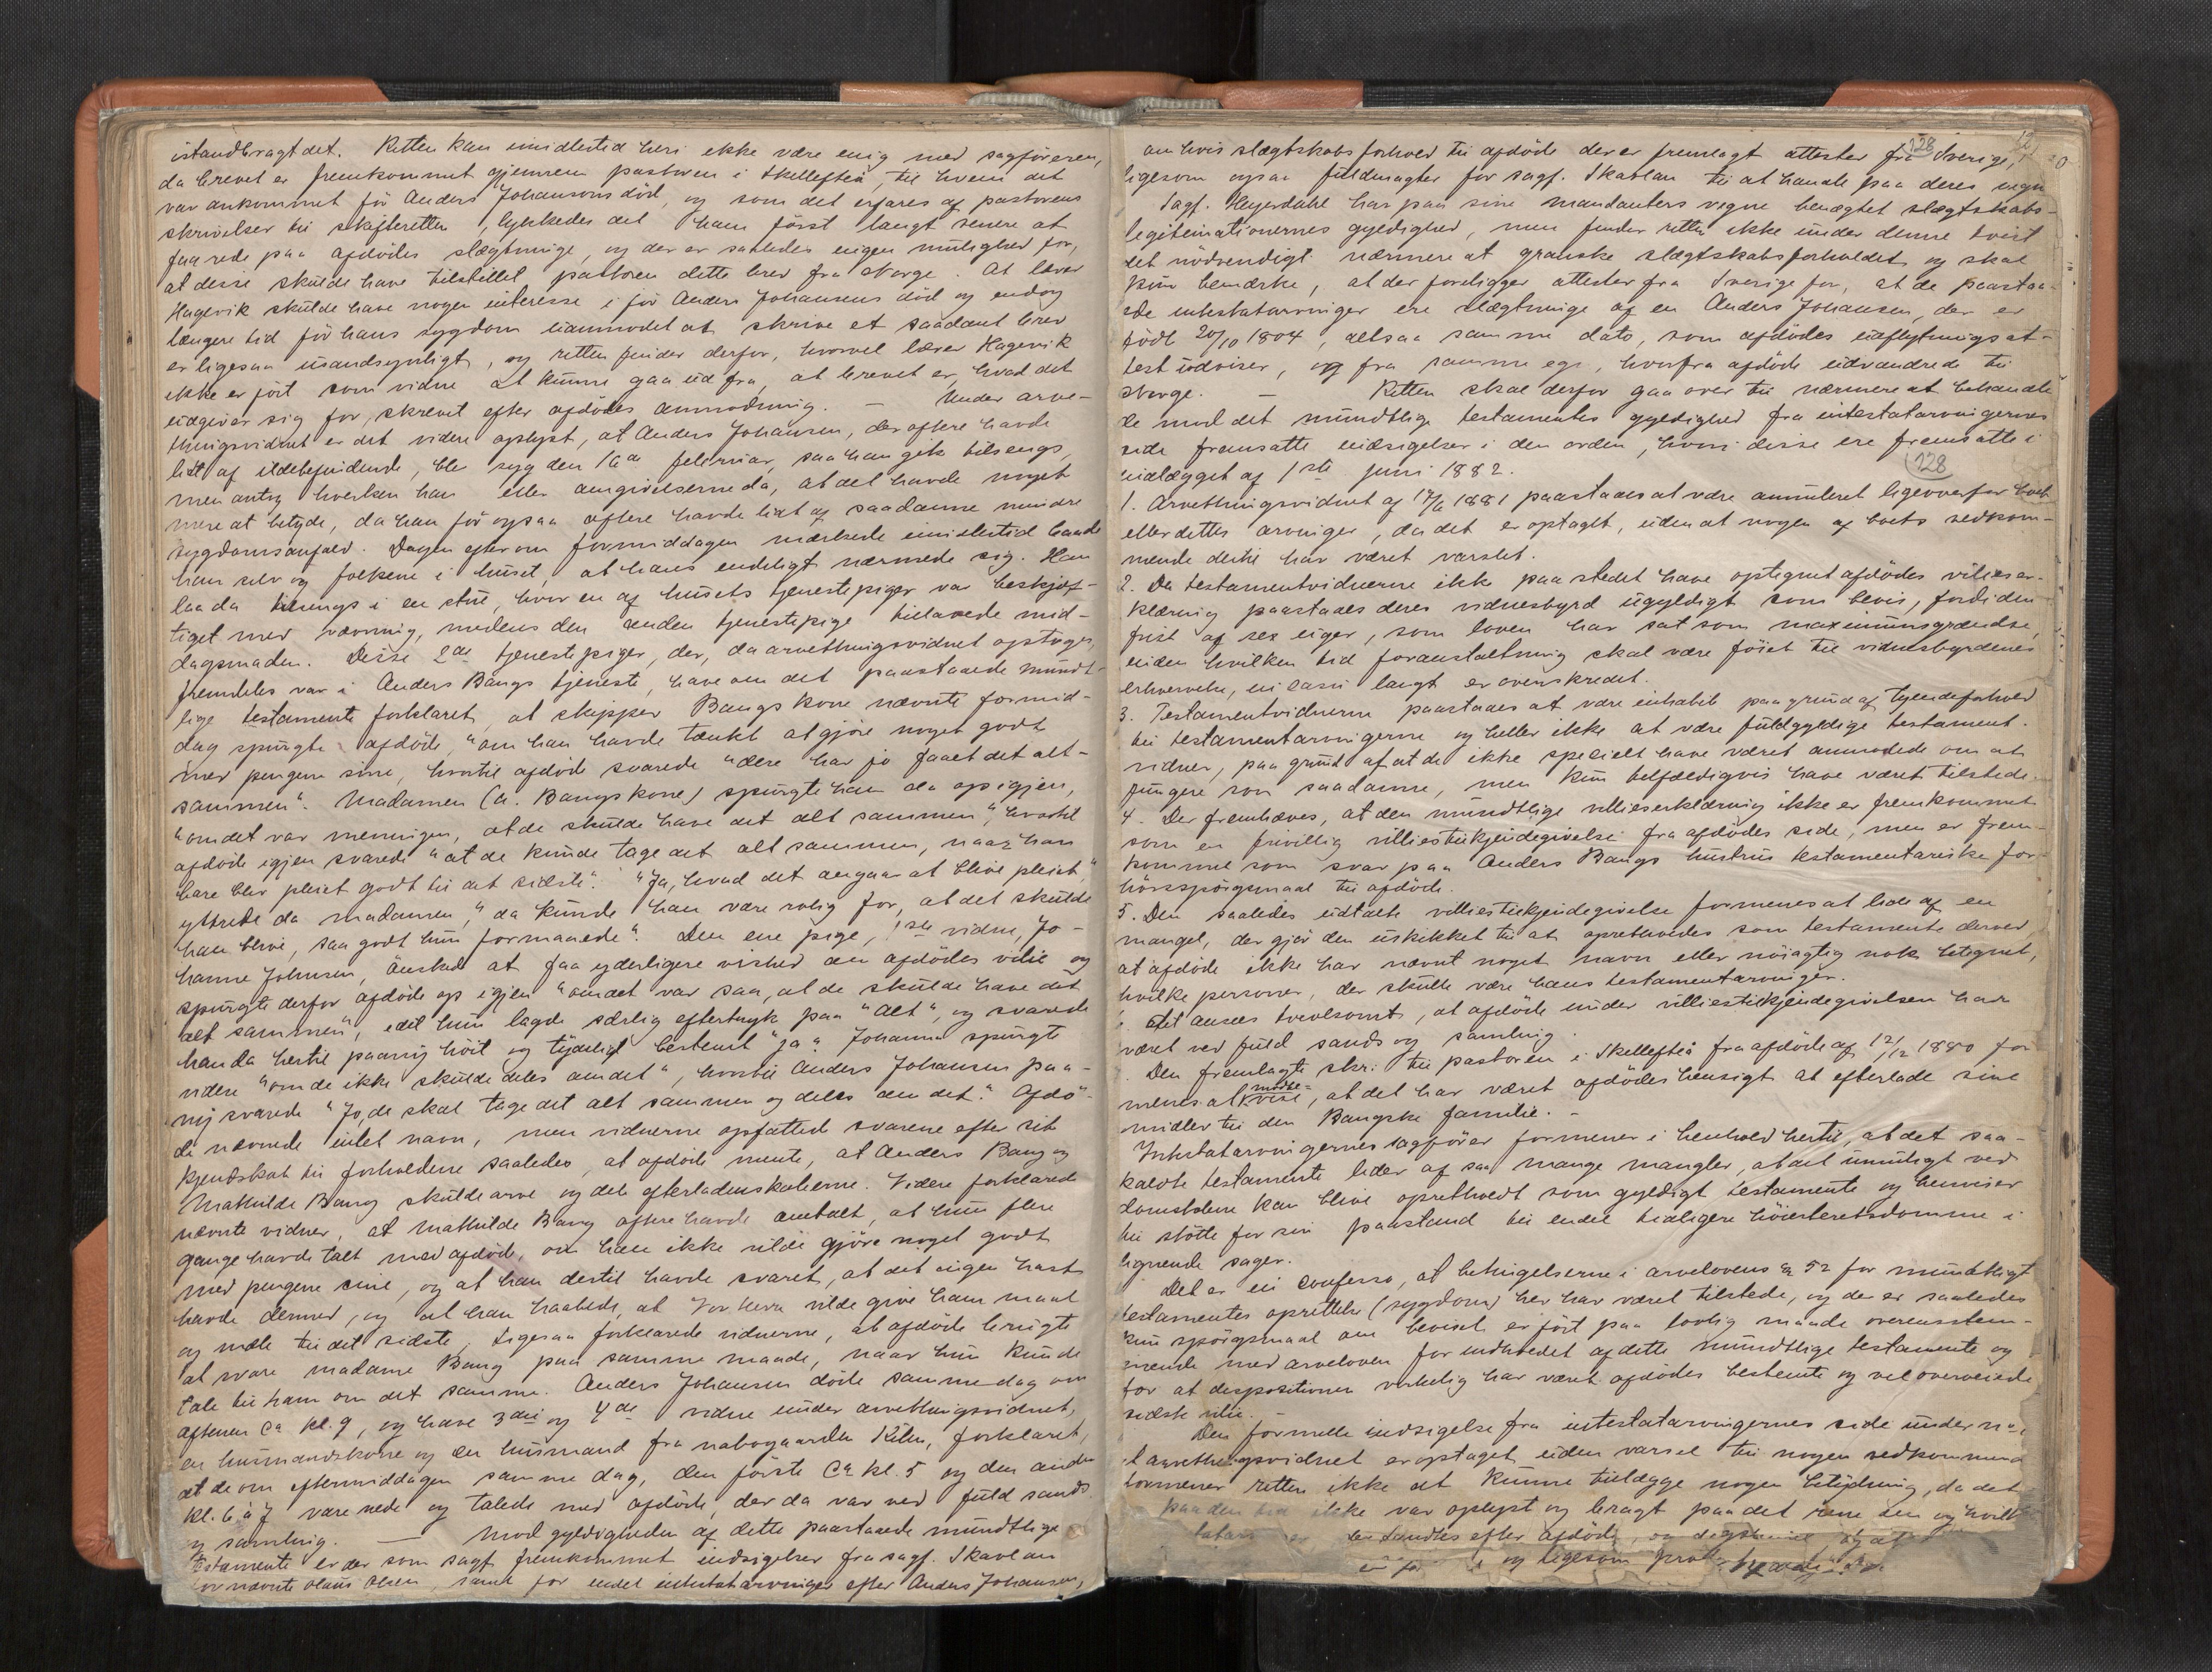 istandbragt det. Retten kan imidlertid heri ikke være enig med sagföreren,
da brevet er fremkommet gjennem pastoren i Skellefteå, til hvem det
var ankommet för Anders Johansons död, og som det erfares af pastorens
skrivelser til skifteretten, lykkedes det ham först langt senere at
faa rede paa afdödes slægtninge, og der er saaledes ingen mulighed for,
at disse skulde have tilstillet pastoren dette brev fra Norge. At lærer
Hagevik skulde have nogen interesse i för Anders Johansens död og endog
længere tid för hans sygdom uanmodet at skrive et saadant brev
er ligesaa usandsynligt, og retten finder derfor, hvorvel lærer Hagevik
ikke er fört som vidne at kunne gaa ud fra, at brevet er, hvad det
udgiver sig for, skrevet efter afdödes anmodning. — Under arve-
thingsvidnet er det videre oplyst, at Anders Johansen, der oftere havde
lidt af ildebefindende, blev syg den 16de februar, saa han gik tilsengs,
men antog hverken han eller omgivelserne da, at det havde noget
mere at betyde, da han för ogsaa oftere havde lidt af saadanne mindre
sygdomsanfald. Dagen efter om formiddagen mærkede imidlertid baade
han selv og folkene i huset, at hans endeligt nærmede sig. Han
laa da tilsengs i en stue, hvor en af husets tjenestepiger var beskjæf-
tiget med vævning, medens den anden tjenestepige tillavede mid-
dagsmaden. Disse 2de tjenestepiger, der, da arvethingsvidnet optoges,
fremdeles var i Anders Bangs tjeneste, have om det paastaaede mundt-
lige testamente forklaret, at skipper Bangs kone nævnte formid-
dag spurgte afdöde, "om han havde tænkt at gjöre noget godt
med pengene sine, hvortil afdöde svarede "dere har jo faaet det alt-
sammen". Madamen (A. Bangs kone) spurgte ham da op igjen,
"om det var meningen, at de skulde have det alt sammen", hvortil
afdöde igjen svarede "at de kunde tage det alt sammen, naar han
bare blev pleiet godt til det sidste". "Ja, hvad det angaar at blive pleiet,"
yttrede da madamen, "da kunde han være rolig for, at det skulde
han blive, saa godt hun formaaede". Den ene pige, 1ste vidne, Jo-
hanne Johnsen, önskede at faa yderligere vished om afdödes vilie og
spurgte derfor afdöde op igjen "om det var saa, at de skulde have det
alt sammen", idet hun lagde særlig eftertryk paa "alt", og svarede
han da hertil paany höit og tydeligt bestemt "ja". Johanne spurgte
videre "om de ikke skulde deles om det", hvortil Anders Johansen paa-
ny svarede "Jo, de skal tage det alt sammen og deles om det." Afdö-
de nævnede intet navn, men vidnerne opfattede svarene efter sit
kjendskab til forholdene saaledes, at afdöde mente, at Anders Bang og
Mathilde Bang skulde arve og dele efterladenskaberne. Videre forklarede
nævnte vidner, at Mathilde Bang oftere havde omtalt, at hun flere
gange havde talt med afdöde, om han ikke vilde gjöre noget godt
med pengene sine, og at han dertil havde svaret, at det ingen hast
havde dermed, og at han haabede, at Vor Herre vilde give ham maal
og mæle til det sidste. Ligesaa forklarede vidnerne, at afdöde brugte
at svare madame Bang paa samme maade, naar hun kunde
tale til ham om det samme. Anders Johansen döde samme dag om
aftenen ca kl. 9, og have 3die og 4de vidne under arvethingsvidnet,
en husmandskone og en husmand fra nabogaarden Kilen, forklaret,
at de om eftermiddagen samme dag, den förste ca kl. 5 og den anden
kl. 6 à 7 vare nede og talede med afdöde, der da var ved fuld sands
og samling. — Mod gyldigheden af dette paastaaede mundtlige
testamente er der som sagt fremkommet indsigelser fra sagf. Skavlan
for nævnte Olaus Olsen, samt for endel intestatarvinger efter Anders Johansen,
128
om hvis slægtskabsforhold til afdöde der er fremlagt attester fra Sverige,
ligesom ogsaa fuldmagter for sagf. Skavlan til at handle paa deres vegne
Sagf. Heyerdahl har paa sine mandanters vegne benægtet slægtskabs-
legitimationernes gyldighed, men finder retten ikke under denne tvist
det nödvendigt nærmere at granske slægtskabsforholdet og skal
kun bemærke, at der foreligger attester fra Sverige for, at de paastaa-
ede intestatarvinger ere slægtninge af en Anders Johansen, der er
född 20/10 1804, altsaa samme dato, som afdödes udflytningsat-
test udviser, og fra samme egn, hvorfra afdöde udvandrede til
Norge. — Retten skal derfor gaa over til nærmere at behandle
de mod det mundtlige testamentes gyldighed fra intestatarvingernes
side fremsatte indsigelser i den orden, hvori disse ere fremsatte i
indlægget af 1ste juni 1882.
128
1. Arvethingsvidnet af 17/6 1881 paastaaes at være annuleret ligeoverfor boet
eller dettes arvinger, da det er optaget, uden at nogen af boets vedkom-
mende dertil har været varslet.
2. Da testamentvidnerne ikke paa stedet have optegnet afdödes villieser-
klæring paastaaes deres vidnesbyrd ugyldigt som bevis, fordi den
frist af sex uger, som loven har sat som maximumsgrændse,
inden hvilken tid foranstaltning skal være föiet til vidnesbyrdenes
erhvervelse, in casu langt er overskredet.
3. Testamentvidnerne paastaaes at være inhabile paa grund af tyendeforhold
til testamentarvingerne og heller ikke at være fuldgyldige testament-
vidner, paa grund af at de ikke specielt have været anmodede om at
fungere som saadanne, men kun tilfældigvis have været tilstede.
4. Der fremhæves, at den mundtlige villieserklæring ikke er fremkommet
som en frivillig villiestilkjendegivelse fra afdödes side, men er frem-
kommet som svar paa Anders Bangs hustrus testamentariske for-
hörsspörgsmaal til afdöde.
5. Den saaledes udtalte villiestilkjendegivelse formenes at lide af en
mangel, der gjör den uskikket til at opretholdes som testamente derved,
at afdöde ikke har nævnt noget navn eller nöiagtig nok betegnet,
hvilke personer, der skulle være hans testamentarvinger.
Det ansees tvivlsomt, at afdöde under villiestilkjendegivelsen har
været ved fuld sands og samling.
Den fremlagte skr. til pastoren i Skellefteå fra afdöde af 12/12 1880 for-
menes at modbe-vise, at det har været afdödes hensigt at efterlade sine
midler til den Bangske familie. —
Intestatarvingernes sagförer formener i henhold hertil, at det saa-
kaldte testamente lider af saa mange mangler, at det umuligt ved
domstolene kan blive opretholdt som gyldigt testamente og henviser
til stötte for sin paastand til endel tidligere höiesteretsdomme i
lignende sager.
Det er in confesso, at betingelserne i arvelovens § 52 for mundtligt
testamentes oprettelse (sygdom) her har været tilstede, og der er saaledes
kun spörgsmaal om beviset er fört paa lovlig maade overensstem-
mende med arveloven for indholdet af dette mundtlige testamente og
for at dispositionen virkelig har været afdödes bestemte og vel overveiede
sidste vilie. —
Den formelle indsigelse fra intestatarvingernes side under no 1,
at arvethingsvidnet er optaget uden varsel til nogen vedkommende
formener retten ikke at kunne tillægge nogen betydning, da det
paa den tid ikke var oplyst og bragt paa det rene om og hvilke
efter afdöde, og
og ligesom